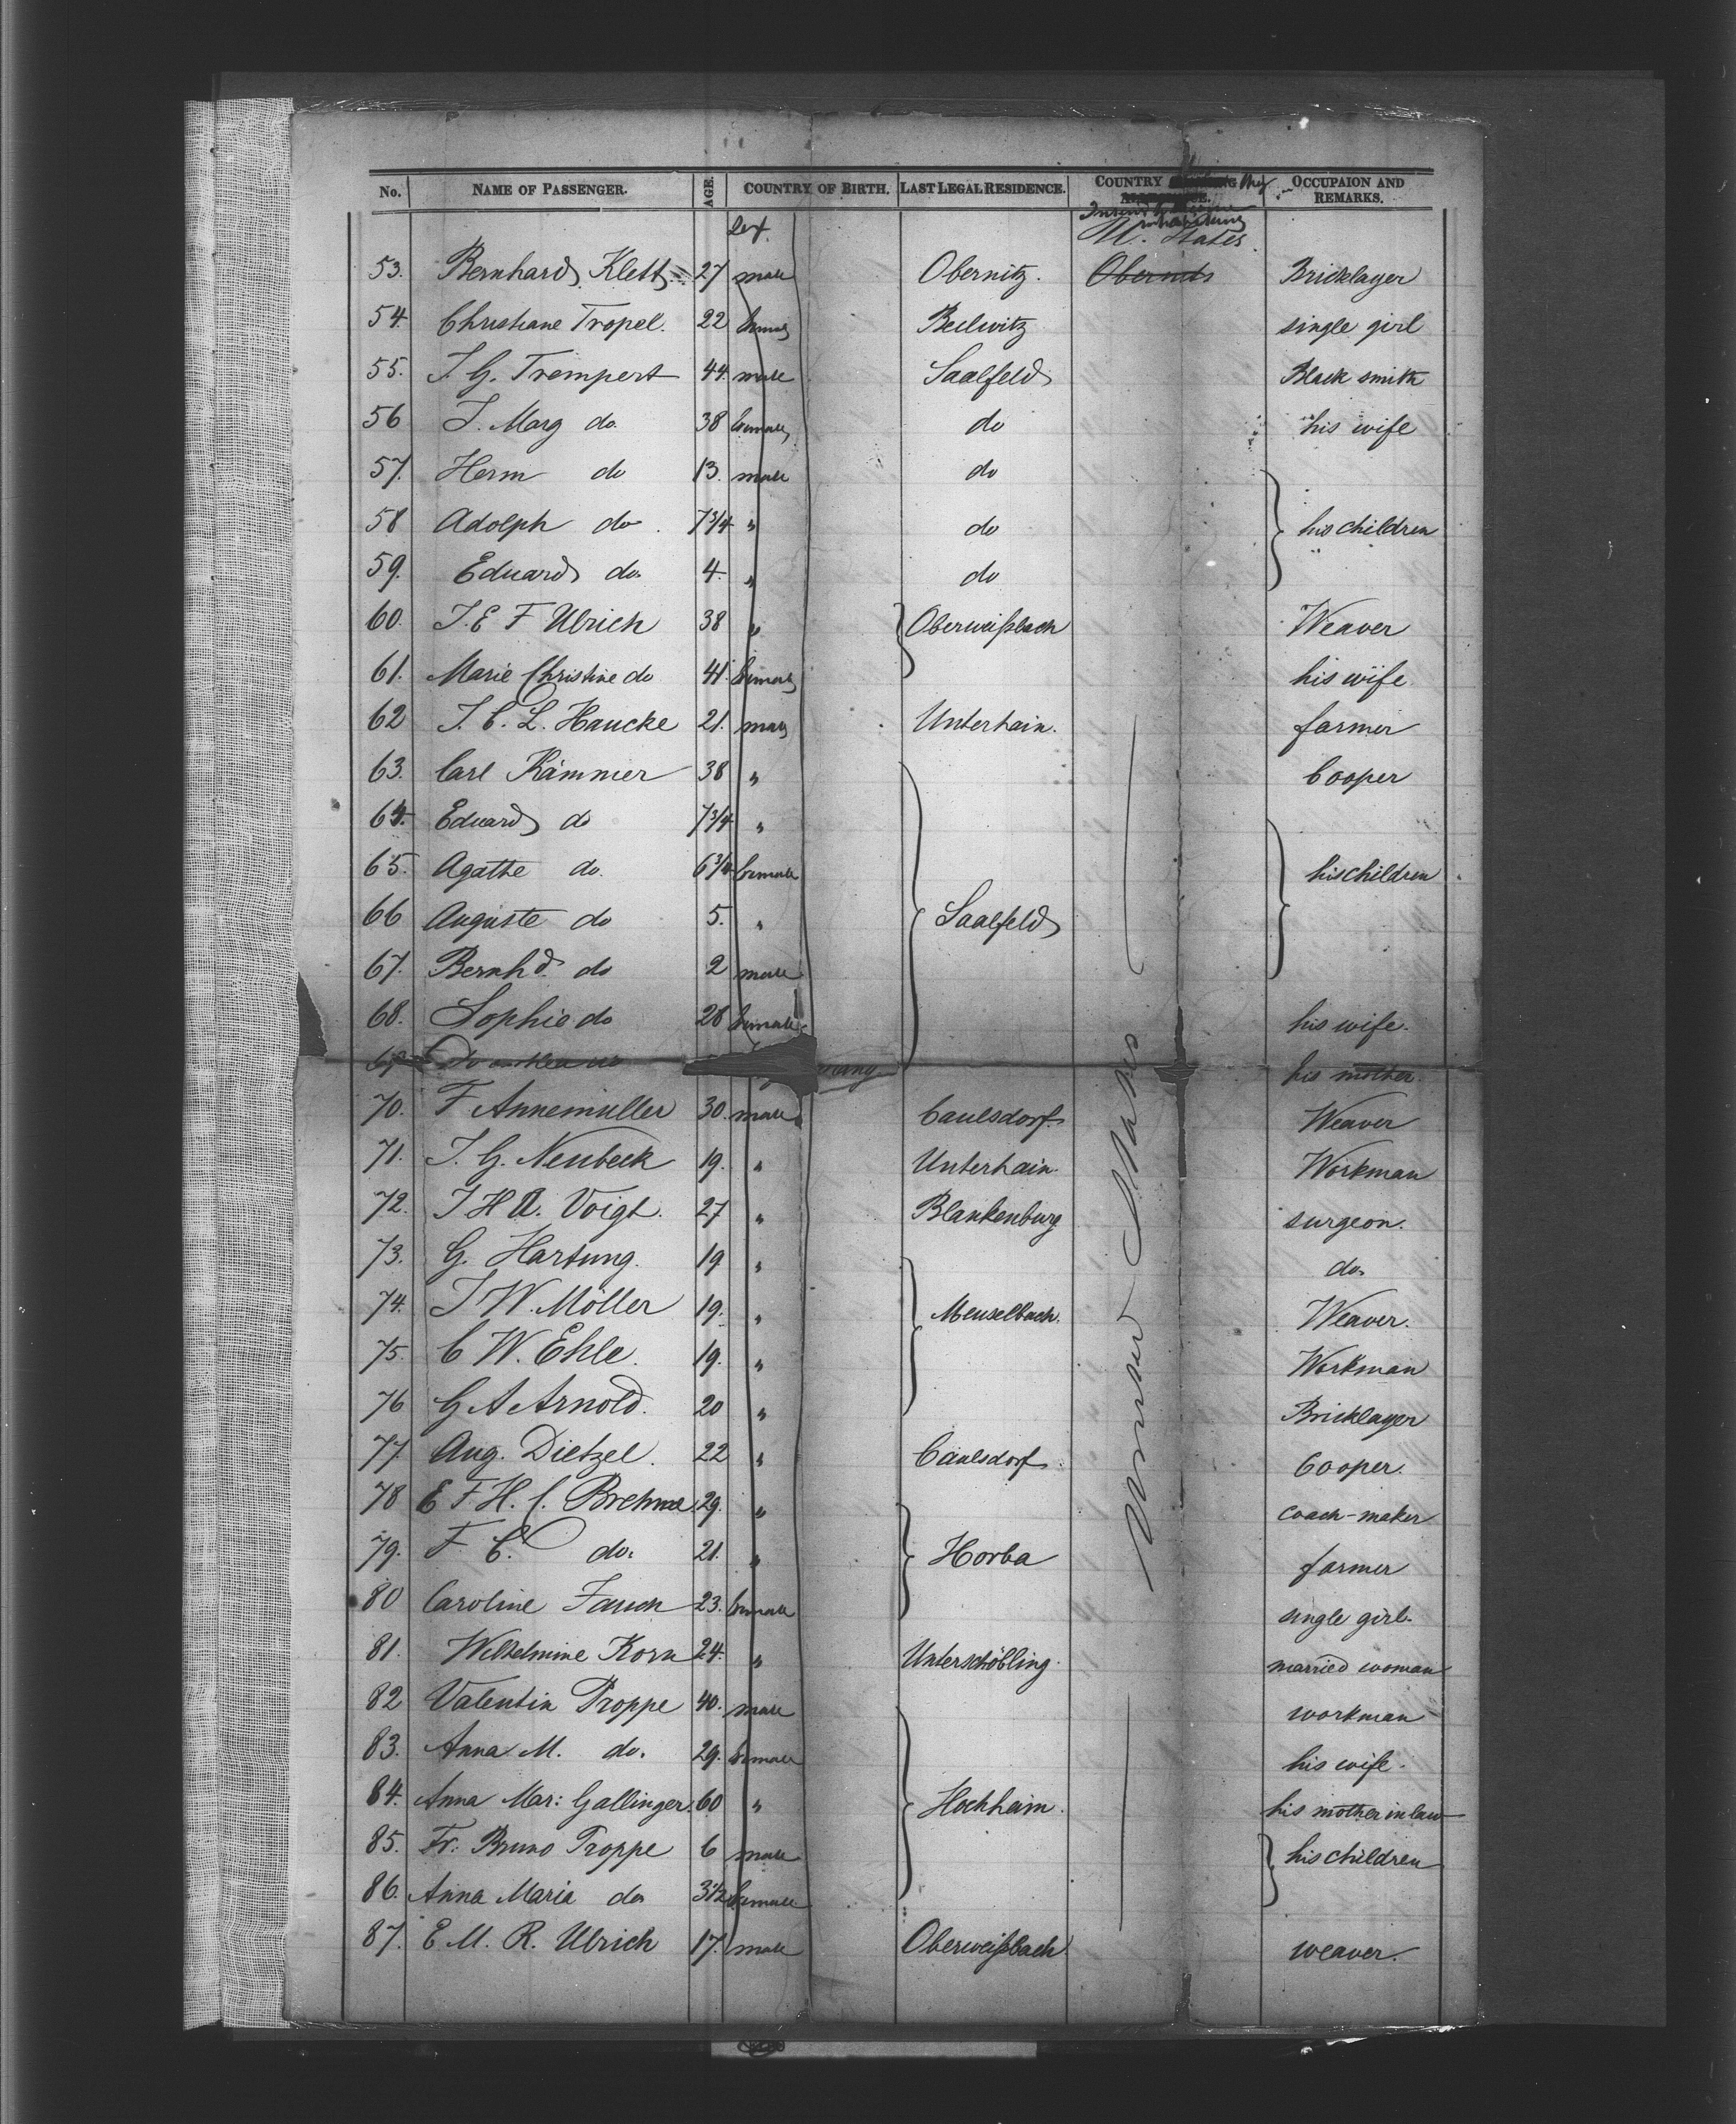 No. NAME OF PASSENGER. AGE. COUNTRY OF BIRTH. LAST LEGAL RESIDENCE. COUNTRY they OCCUPAION AND REMARKS.
Sex. Intend
U. States
53. Bernhard Klett 27 male Obernitz. Bricklayer
54. Christiane Tropel. 22 female Beulwitz single girl
55. J. G. Trempert 44. male Saalfeld Black smith
56 J. Marg do. 38 female do his wife
57. Herm do 13. male do
58 Adolph do 7 3/4 " do his children
59. Eduard do. 4. " do
60. J. E F Ulrich 38 " Oberweißbach Weaver
61. Marie Christine do 41. female his wife
62 J. E. L. Haucke 21. male Unterhain. farmer
63. Carl Kämmer 38 " Cooper
64. Eduard do 7 3/4 "
65. Agathe do. 6 3/4 female his children
66 Auguste do 5. " Saalfeld
67. Bernhd. do 2 male
68. Sophie do 28 female his wife.
69 do his mother.
70. F Annemuller 30. male Caulsdorf Weaver
71. J. G. Neubeck 19. " Unterhain. Workman
72. J H A. Voigt. 27 " Blankenburg surgeon.
73. G. Hartung. 19 " do.
74. J W. Möller 19. " Meuselbach. Weaver.
75. C W. Ehle. 19. " Workman
76 G A Arnold. 20 " Bricklayer
77. Aug. Dietzel. 22 " Caulsdorf Cooper.
78 E F H. C. Brehme 29. " coach-maker
79. F. C. do. 21. " Horba farmer
80 Caroline 23. female single girl.
81. Wilhelmine Korn 24. " Unterschöbling. married woman
82 Valentin Proppe 40. male workman
83. Anna M. do. 29. female his wife.
84. Anna Mar: Gallinger. 60 " Hochheim. his mother in law
85. Fr. Bruno Proppe 6 male his children
86. Anna Maria do 3 1/2 female
87. E. M. R. Ulrich 17. male Oberweißbach weaver.
United States